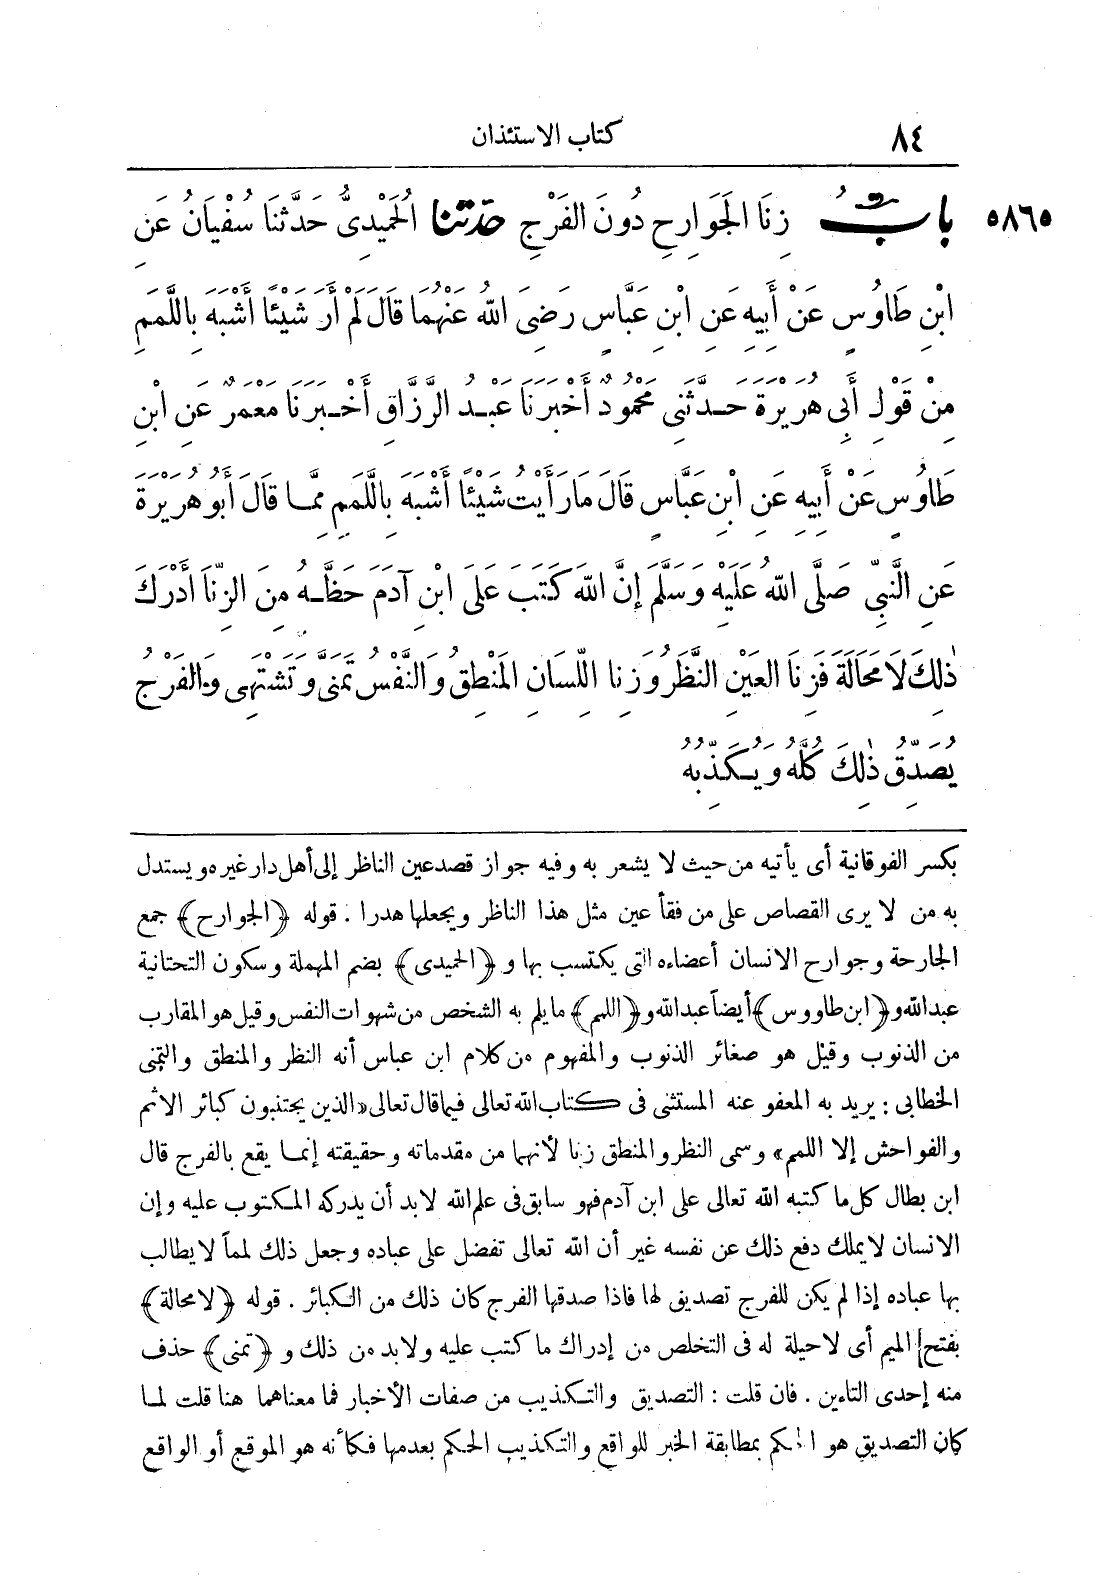 ٨٤ كتاب الاستئذان
٥٨٦٥ بابُ زِنَا الجَوَارِحِ دُونَ الفَرْجِ حدثنا الْحُمَيْدِىُّ حَدَّثَنَا سُفْيَانُ عَنِ
ابْنِ طَاوُسٍ عَنْ أَبِيهِ عَنِ ابْنِ عَبَّاسٍ رَضِىَ اللهُ عَنْهُمَا قَالَ لَمْ أَرَ شَيْئًا أَشْبَهَ بِاللَّمَمِ
مِنْ قَوْلِ أَبِى هُرَيْرَةَ حَدَّثَنِى مَحْمُودٌ أَخْبَرَنَا عَبْدُ الرَّزَّاقِ أَخْبَرَنَا مَعْمَرٌ عَنِ ابْنِ
طَاوُسٍ عَنْ أَبِيهِ عَنِ ابْنِ عَبَّاسٍ قَالَ مَا رَأَيْتُ شَيْئًا أَشْبَهَ بِاللَّمَمِ مِمَّا قَالَ أَبُو هُرَيْرَةَ
عَنِ النَّبِىِّ صَلَّى اللهُ عَلَيْهِ وَسَلَّمَ إِنَّ اللهَ كَتَبَ عَلَى ابْنِ آدَمَ حَظَّهُ مِنَ الزِّنَا أَدْرَكَ
ذٰلِكَ لَا مَحَالَةَ فَزِنَا العَيْنِ النَّظَرُ وَزِنا اللِّسَانِ المَنْطِقُ وَالنَّفْسُ تَمَنَّى وَتَشْتَهِى وَالفَرْجُ
يُصَدِّقُ ذٰلِكَ كُلَّهُ وَيُكَذِّبُهُ
بكسر الفوقانية أى يأتيه من حيث لا يشعر به وفيه جواز قصد عين الناظر إلى أهل دار غيره ويستدل
به من لا يرى القصاص على من فقأ عين مثل هذا الناظر ويجعلها هدرا . قوله ﴿الجوارح﴾ جمع
الجارحة وجوارح الانسان أعضاءه التى يكتسب بها و ﴿الحميدى﴾ بضم المهملة وسكون التحتانية
عبدالله و﴿ابن طاووس﴾ أيضاً عبدالله و﴿اللمم﴾ ما يلم به الشخص من شهوات النفس وقيل هو المقارب
من الذنوب وقيل هو صغائر الذنوب والمفهوم من كلام ابن عباس أنه النظر والمنطق والتمنى
الخطابى : يريد به المعفو عنه المستثنى فى كتاب الله تعالى فيما قال تعالى «الذين يجتنبون كبائر الاثم
والفواحش إلا اللمم» وسمى النظر والمنطق زنا لأنهما من مقدماته وحقيقته إنما يقع بالفرج قال
ابن بطال كل ما كتبه الله تعالى على ابن آدم فهو سابق فى علم الله لابد أن يدركه المكتوب عليه وإن
الانسان لا يملك دفع ذلك عن نفسه غير أن الله تعالى تفضل على عباده وجعل ذلك لمماً لا يطالب
بها عباده إذا لم يكن للفرج تصديق لها فاذا صدقها الفرج كان ذلك من الكبائر . قوله ﴿لا محالة﴾
بفتح الميم أى لا حيلة له فى التخلص من إدراك ما كتب عليه ولابد من ذلك و ﴿تمنى﴾ حذف
منه إحدى التاءين . فان قلت : التصديق والتكذيب من صفات الأخبار فما معناهما هنا قلت لما
كان التصديق هو الحكم بمطابقة الخبر للواقع والتكذيب الحكم بعدمها فكأنه هو الموقع أو الواقع